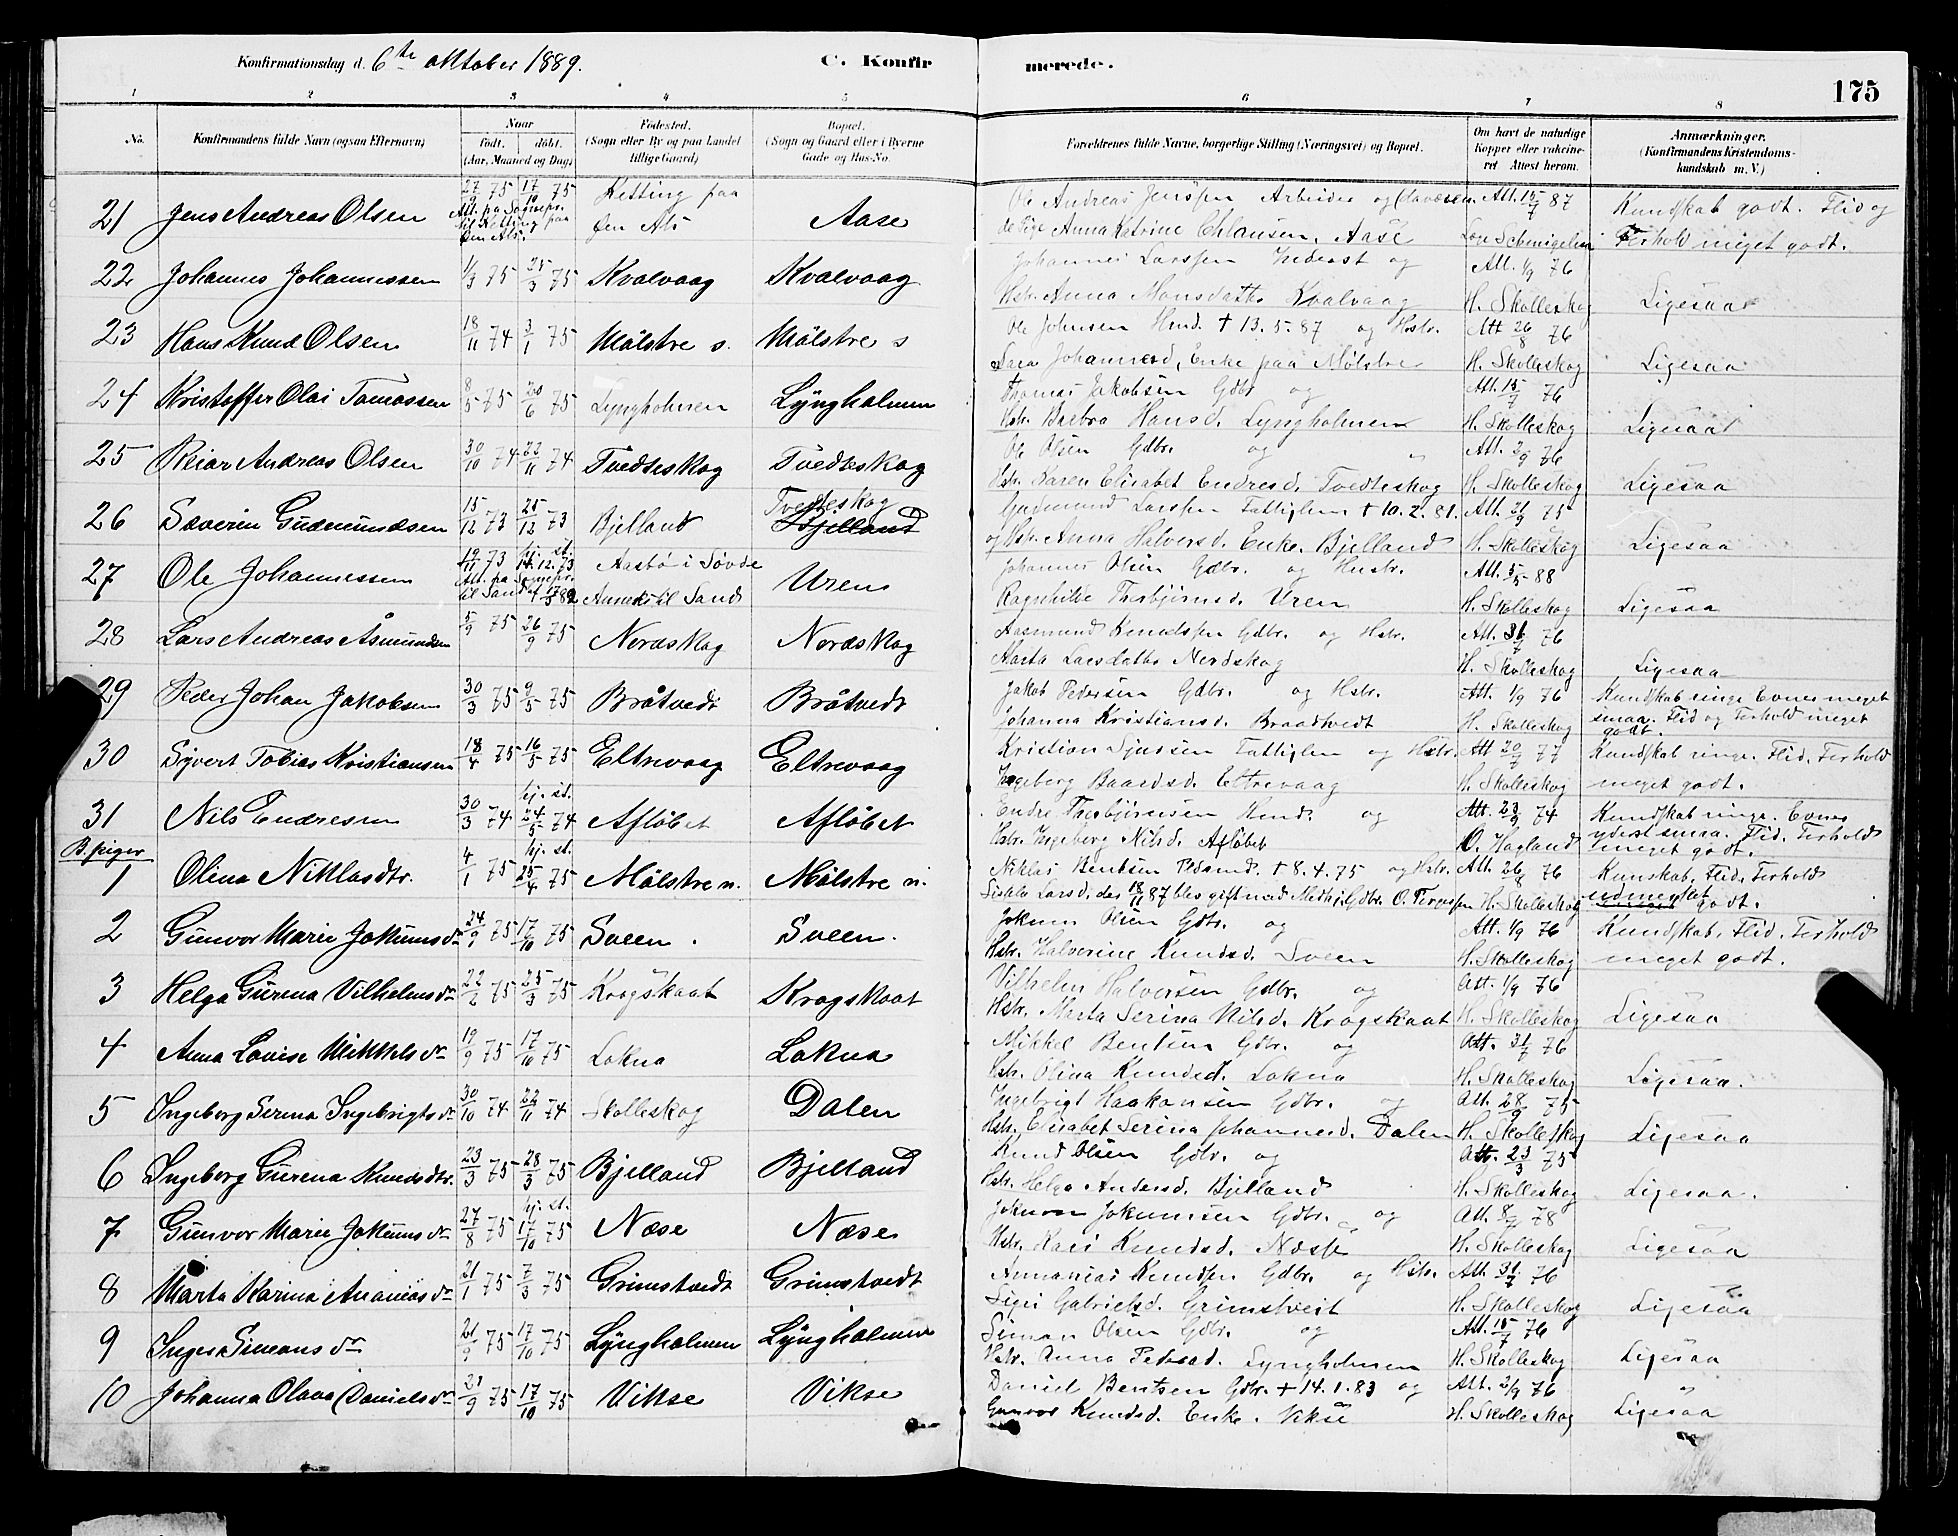 Konfirmationsdag d. 6te oktober 1889. C. Konfirmerede. 175
1 2 3 4 5 6 7 8
No. Konfirmandens fulde Navn (ogsaa Efternavn) Naar født. døbt. (Aar, Maaned og Dag) Fødested. (Sogn eller By og paa Landet tillige Gaard) Bopæl. (Sogn og Gaard eller i Byerne Gade og Hus-No. Forældrenes fulde Navne, borgerlige Stilling (Næringsvei) og Bopæl. Om havt de naturlige Kopper eller vakcineret Attest herom. Anmærkninger. (Konfirmandens Kristendomskundskab m. V.)
21 Jens Andreas Olsen 27/9 75 17/10 75 Att. fra Sognepr. til Ketting paa Øen Als. Ketting paa Øen Als Aase Ole Andreas Jensen Arbeider og Anna Katrine Chlausen, Aase Att. 15/7 87 Kundskab godt. Flid og Forhold meget godt.
22 Johannes Johannessen 1/3 75 25/3 75 Kvalvaag Kvalvaag Johannes Larssen Inderst og Hstr. Anna Monsdatter Kvalvaag Att. 1/9 76 H. Skolleskog Ligesaa
23 Hans Knud Olsen 18/11 74 3/1 75 Mølstre s. Mølstre s Ole Johnsen Hmd. † 13.5.87 og Hstr. Sara Johannesd, Enke paa Mølstre Att 26/8 76 H. Skolleskog Ligesaa
24 Kristoffer Olai Tomassen 8/5 75 20/6 75 Lyngholmen Lyngholmen Thomas Jakobsen Gdbr og Hstr. Barbra Hansd. Lyngholmen Att. 15/7 76 H. Skolleskog Ligesaa
25 Reiar Andreas Olsen 30/10 74 22/11 74 Tvedteskog Tvedteskog Ole Olsen Gdbr. og Hstr. Karen Elisabet Endresd. Tvedteskog Att. 2/9 76 H. Skolleskog Ligesaa
26 Severin Gudmundsen 15/12 73 25/12 73 Bjelland Tvedteskog Bjelland Gudmund Larssen Fattiglem † 10.2.81. og Hstr. Anna Halversd. Enke. Bjelland Att. 21/9 75 H. Skolleskog Ligesaa
27 Ole Johannessen 19/11 73 hj. st. 14.12.73 Att. fra Sognepr. til Sand Aastø i Søvde Annex til Sand Uren Johannes Olsen Gdbr. og Hustr. Ragnhilde Thorbjørnsd. Uren Att. 5/5 88 H. Skolleskog Ligesaa
28 Lars Andreas Åsmundsen 5/9 75 26/9 75 Nordskog Nordskog Aasmund Knudssen Gdbr. og Hstr. Marta Larsdatter Nordskog Att. 31/7 76 H. Skolleskog Ligesaa
29 Peder Johan Jakobsen 30/3 75 9/5 75 Bråtvedt Bråtvedt Jakob Pedersen Gdbr. og Hstr. Johanna Kristiansd. Braadtvedt Att 1/9 76 H. Skolleskog Kundskab ringe Evner meget smaa. Flid og Forhold meget godt.
30 Syvert Tobias Kristiansen 18/4 75 16/5 75 Eltrevaag Eltrevaag Kristian Sjursen Fattiglem og Hstr. Ingeborg Baardsd. Eltrevaag Att 20/7 77 H. Skolleskog Kundskab ringe. Flid, Forhold meget godt.
31 Nils Endresen 30/3 74 hj. st. 24/5 74 Afløbet Afløbet Endre Thorbjørnsen Hmd. og Hstr. Ingeborg Nilsd. Afløbet Att. 23/9 74 O. Hagland Kundskab ringe. Evner yderst smaa. Flid. Forhold meget godt.
B. piger
1 Olina Niklasdtr. 4/1 75 hj. st. 25/4 75 Mølstre n. Mølstre n. Niklas Bentsen Pedsmd. † 8.4.75 og Hstr. Lisabe Larsd. der 18/11 87 blev gift med Gdbr. O. Att. 26/8 76 H. Skolleskog Kunskab, Flid, Forhold udmerket godt.
2 Gunvor Marie Jokumsdr 24/9 75 17/10 75 Sveen. Sveen. Jokum Olsen Gdbr. og Hstr. Halverine Knudsd. Sveen Att. 1/9 76 H. Skolleskog Kundskab, Flid. Forhold meget godt.
3 Helga Gurena Vilhelmsdr 22/2 75 25/3 75 Krogskaat Krogskaat Vilhelm Halversen Gdbr. og Hstr. Marta Serina Nilsd. Krogskaat Att. 1/9 76 H. Skolleskog Ligesaa
4 Anna Lovise Mikkelsdr 19/9 75 17/10 75 Lokna Lokna Mikkel Bentsen Gdbr. og Hstr. Olina Knudsd. Lokna Att. 31/7 76 H. Skolleskog Ligesaa.
5 Ingeborg Serina Ingebrigtsdr 30/10 74 22/11 74 Skolleskog Dalen Ingebrigt Haakonsen Gdbr. og Hstr. Elisabet Serina Johannesd. Dalen Att. 28/9 75 H. Skolleskog Ligesaa
6 Ingeborg Gurena Knudsdtr. 23/3 75 28/3 75 Bjelland Bjelland Knud Olsen Gdbr. og Hstr. Helga Andersd. Bjelland Att. 23/3 75 H. Skolleskog Ligesaa.
7 Gunvor Marie Jokumsdr 27/8 75 hj. st. 17/10 75 Næse Næse Jokum Jokumsen Gdbr. og Hstr. Kari Knudsd. Næsse Att. 8/7 78 H. Skolleskog Ligesaa
8 Marta Marina Ananiasdr 21/1 75 7/3 75 Grimstvedt Grimstvedt Annanias Knudsen Gdbr. og Hstr. Sigri Gabrielsd. Grimstveit Att. 31/7 76 H. Skolleskog Ligesaa
9 Inger Simonsdr 21/9 75 17/10 75 Lyngholmen Lyngholmen Simon Olsen Gdbr. og Hstr. Anna Pedersd. Lyngholmen Att. 15/7 76 H. Skolleskog Ligesaa
10 Johanna Olava Danielsdr 21/9 75 17/10 75 Vikse Vikse Daniel Bentsen Gdbr. † 14.1.83 og Gunvor Knudsd. Enke. Vikse Att. 2/9 76 H. Skolleskog Ligesaa